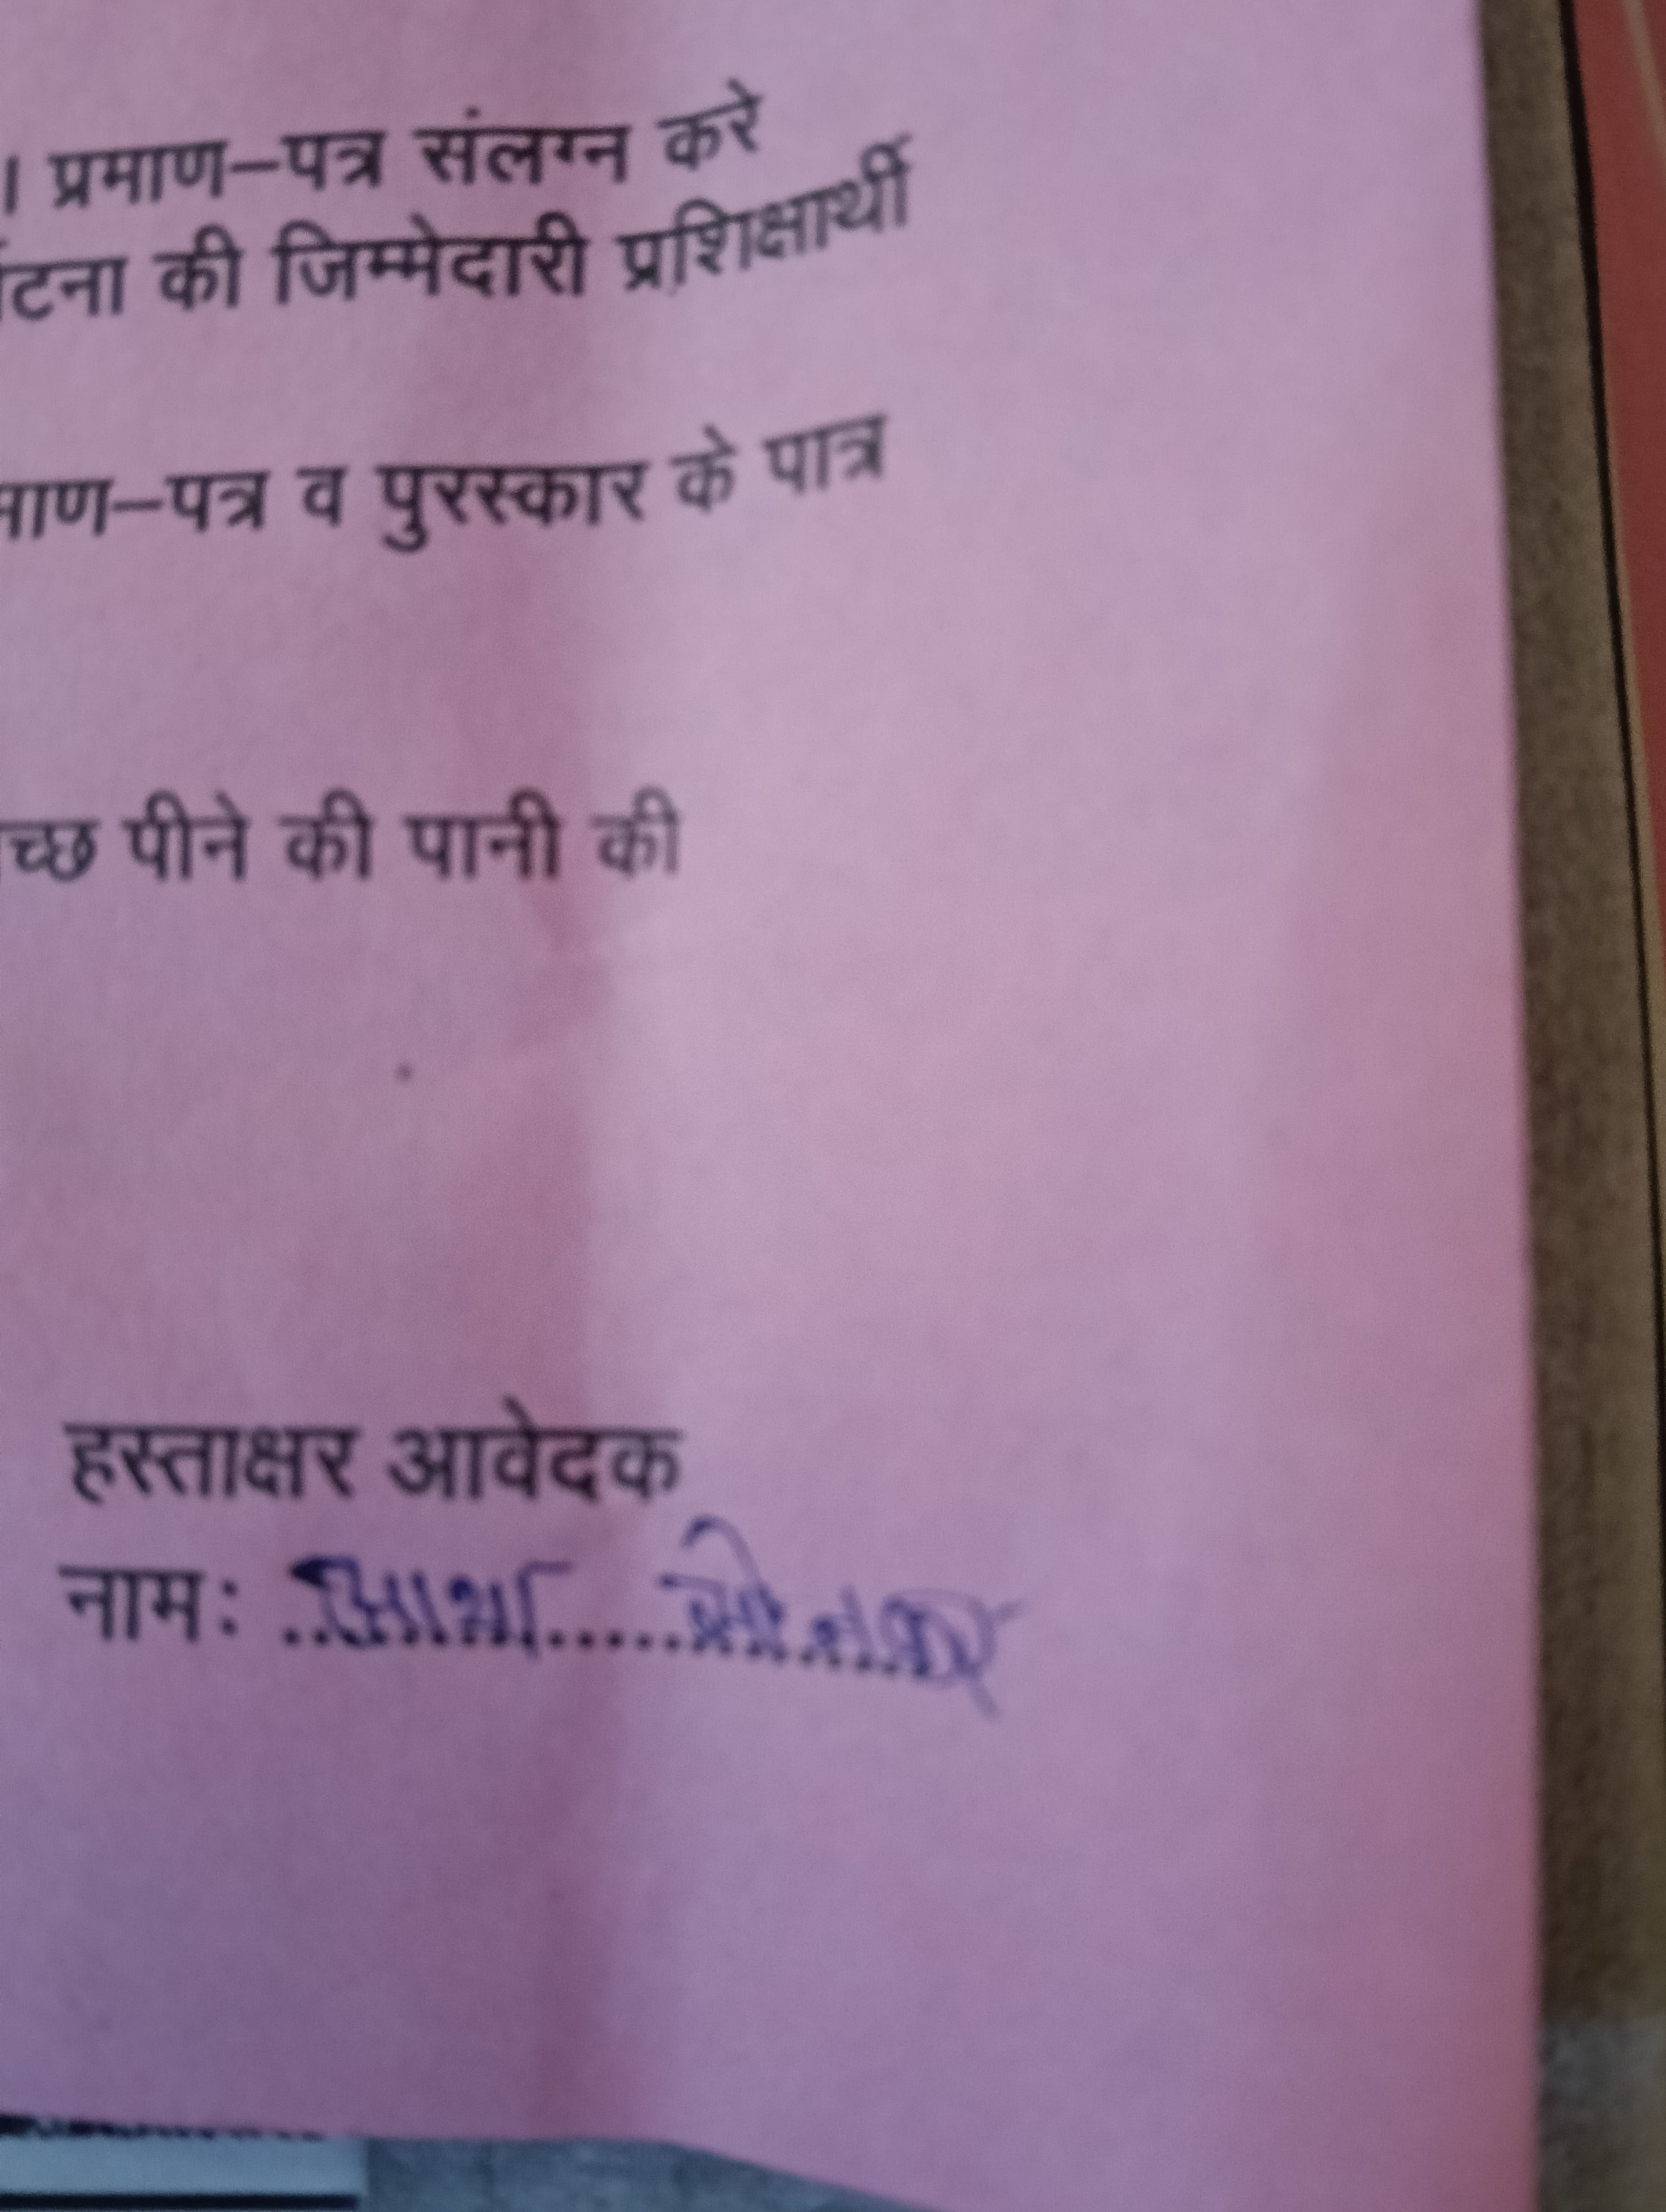 । प्रमाण–पत्र संलग्न करे
टना की जिम्मेदारी प्रशिक्षार्थी
माण–पत्र व पुरस्कार के पात्र
च्छ पीने की पानी की
हस्ताक्षर आवेदक
नाम: